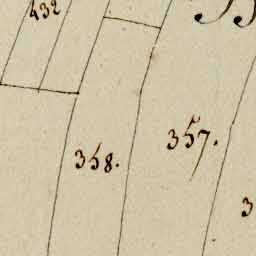 432
357.
358.
3